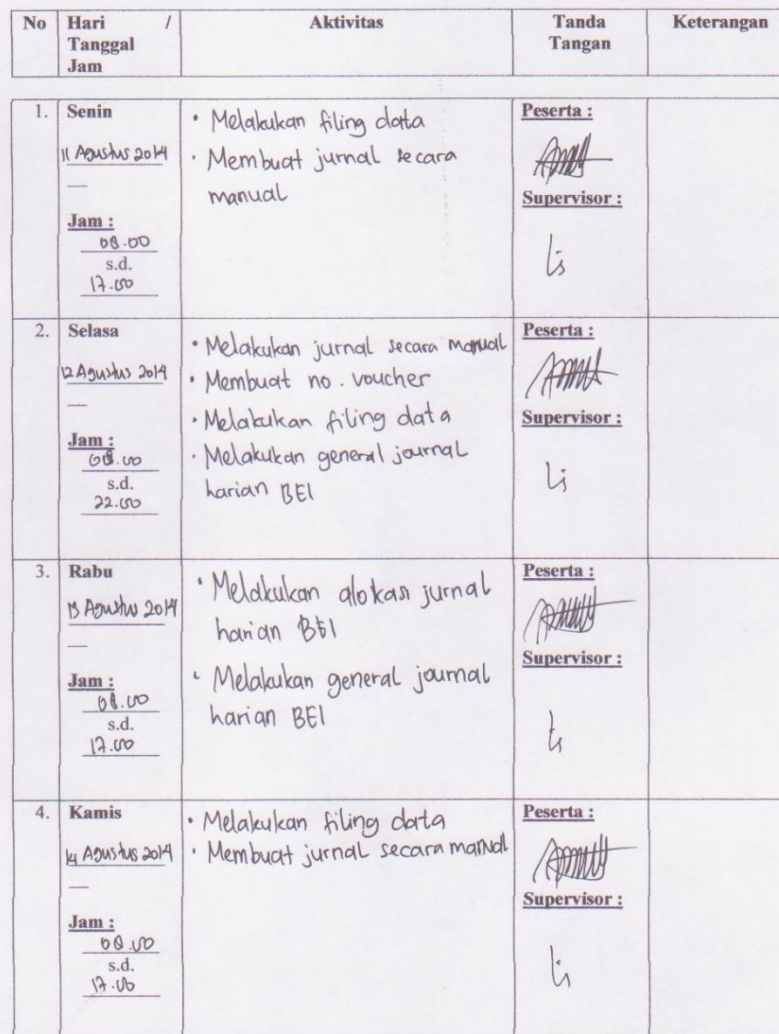 No Hari / Aktivitas Tanda Keterangan
Tanggal Tangan
Jam
1. Senin
11 Agustus 2014
Jam :
08.00
s.d.
17.00
• Melakukan filing data
• Membuat jurnal secara
manual
Peserta :
Supervisor :
2. Selasa
12 Agustus 2014
Jam :
08.00
s.d.
22.00
• Melakukan jurnal secara manual
• Membuat no. voucher
• Melakukan filing data
• Melakukan general journal
harian BEI
Peserta :
Supervisor :
3. Rabu
13 Agustus 2014
Jam :
08.00
s.d.
17.00
• Melakukan alokasi jurnal
harian BEI
• Melakukan general journal
harian BEI
Peserta :
Supervisor :
4. Kamis
14 Agustus 2014
Jam :
08.00
s.d.
17.00
• Melakukan filing data
• Membuat jurnal secara manual
Peserta :
Supervisor :